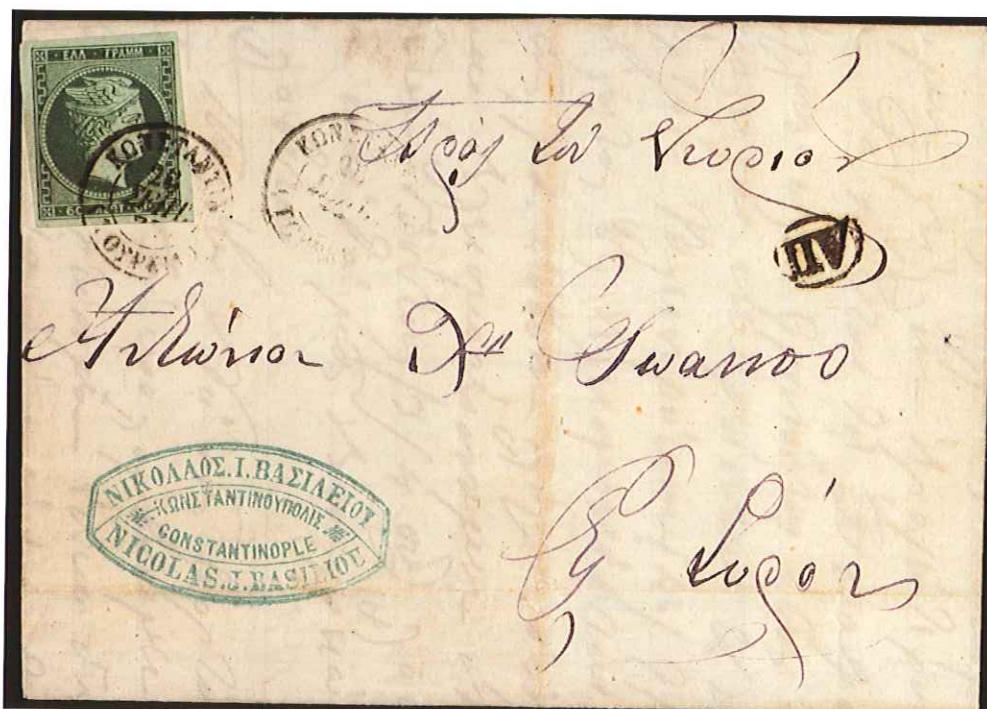 ΕΛΛ ΓΡΑΜΜ
ΚΩΝΣΤΑΝΤΙΝ
ΚΩΝ
Πρός τον Κύριον
ΑΠ
Αντώνιον
Εις Σύρον
ΝΙΚΟΛΑΟΣ.Ι.ΒΑΣΙΛΕΙΟΥ
ΚΩΝΣΤΑΝΤΙΝΟΥΠΟΛΙΣ
CONSTANTINOPLE
NICOLAS.J.BASILIOU